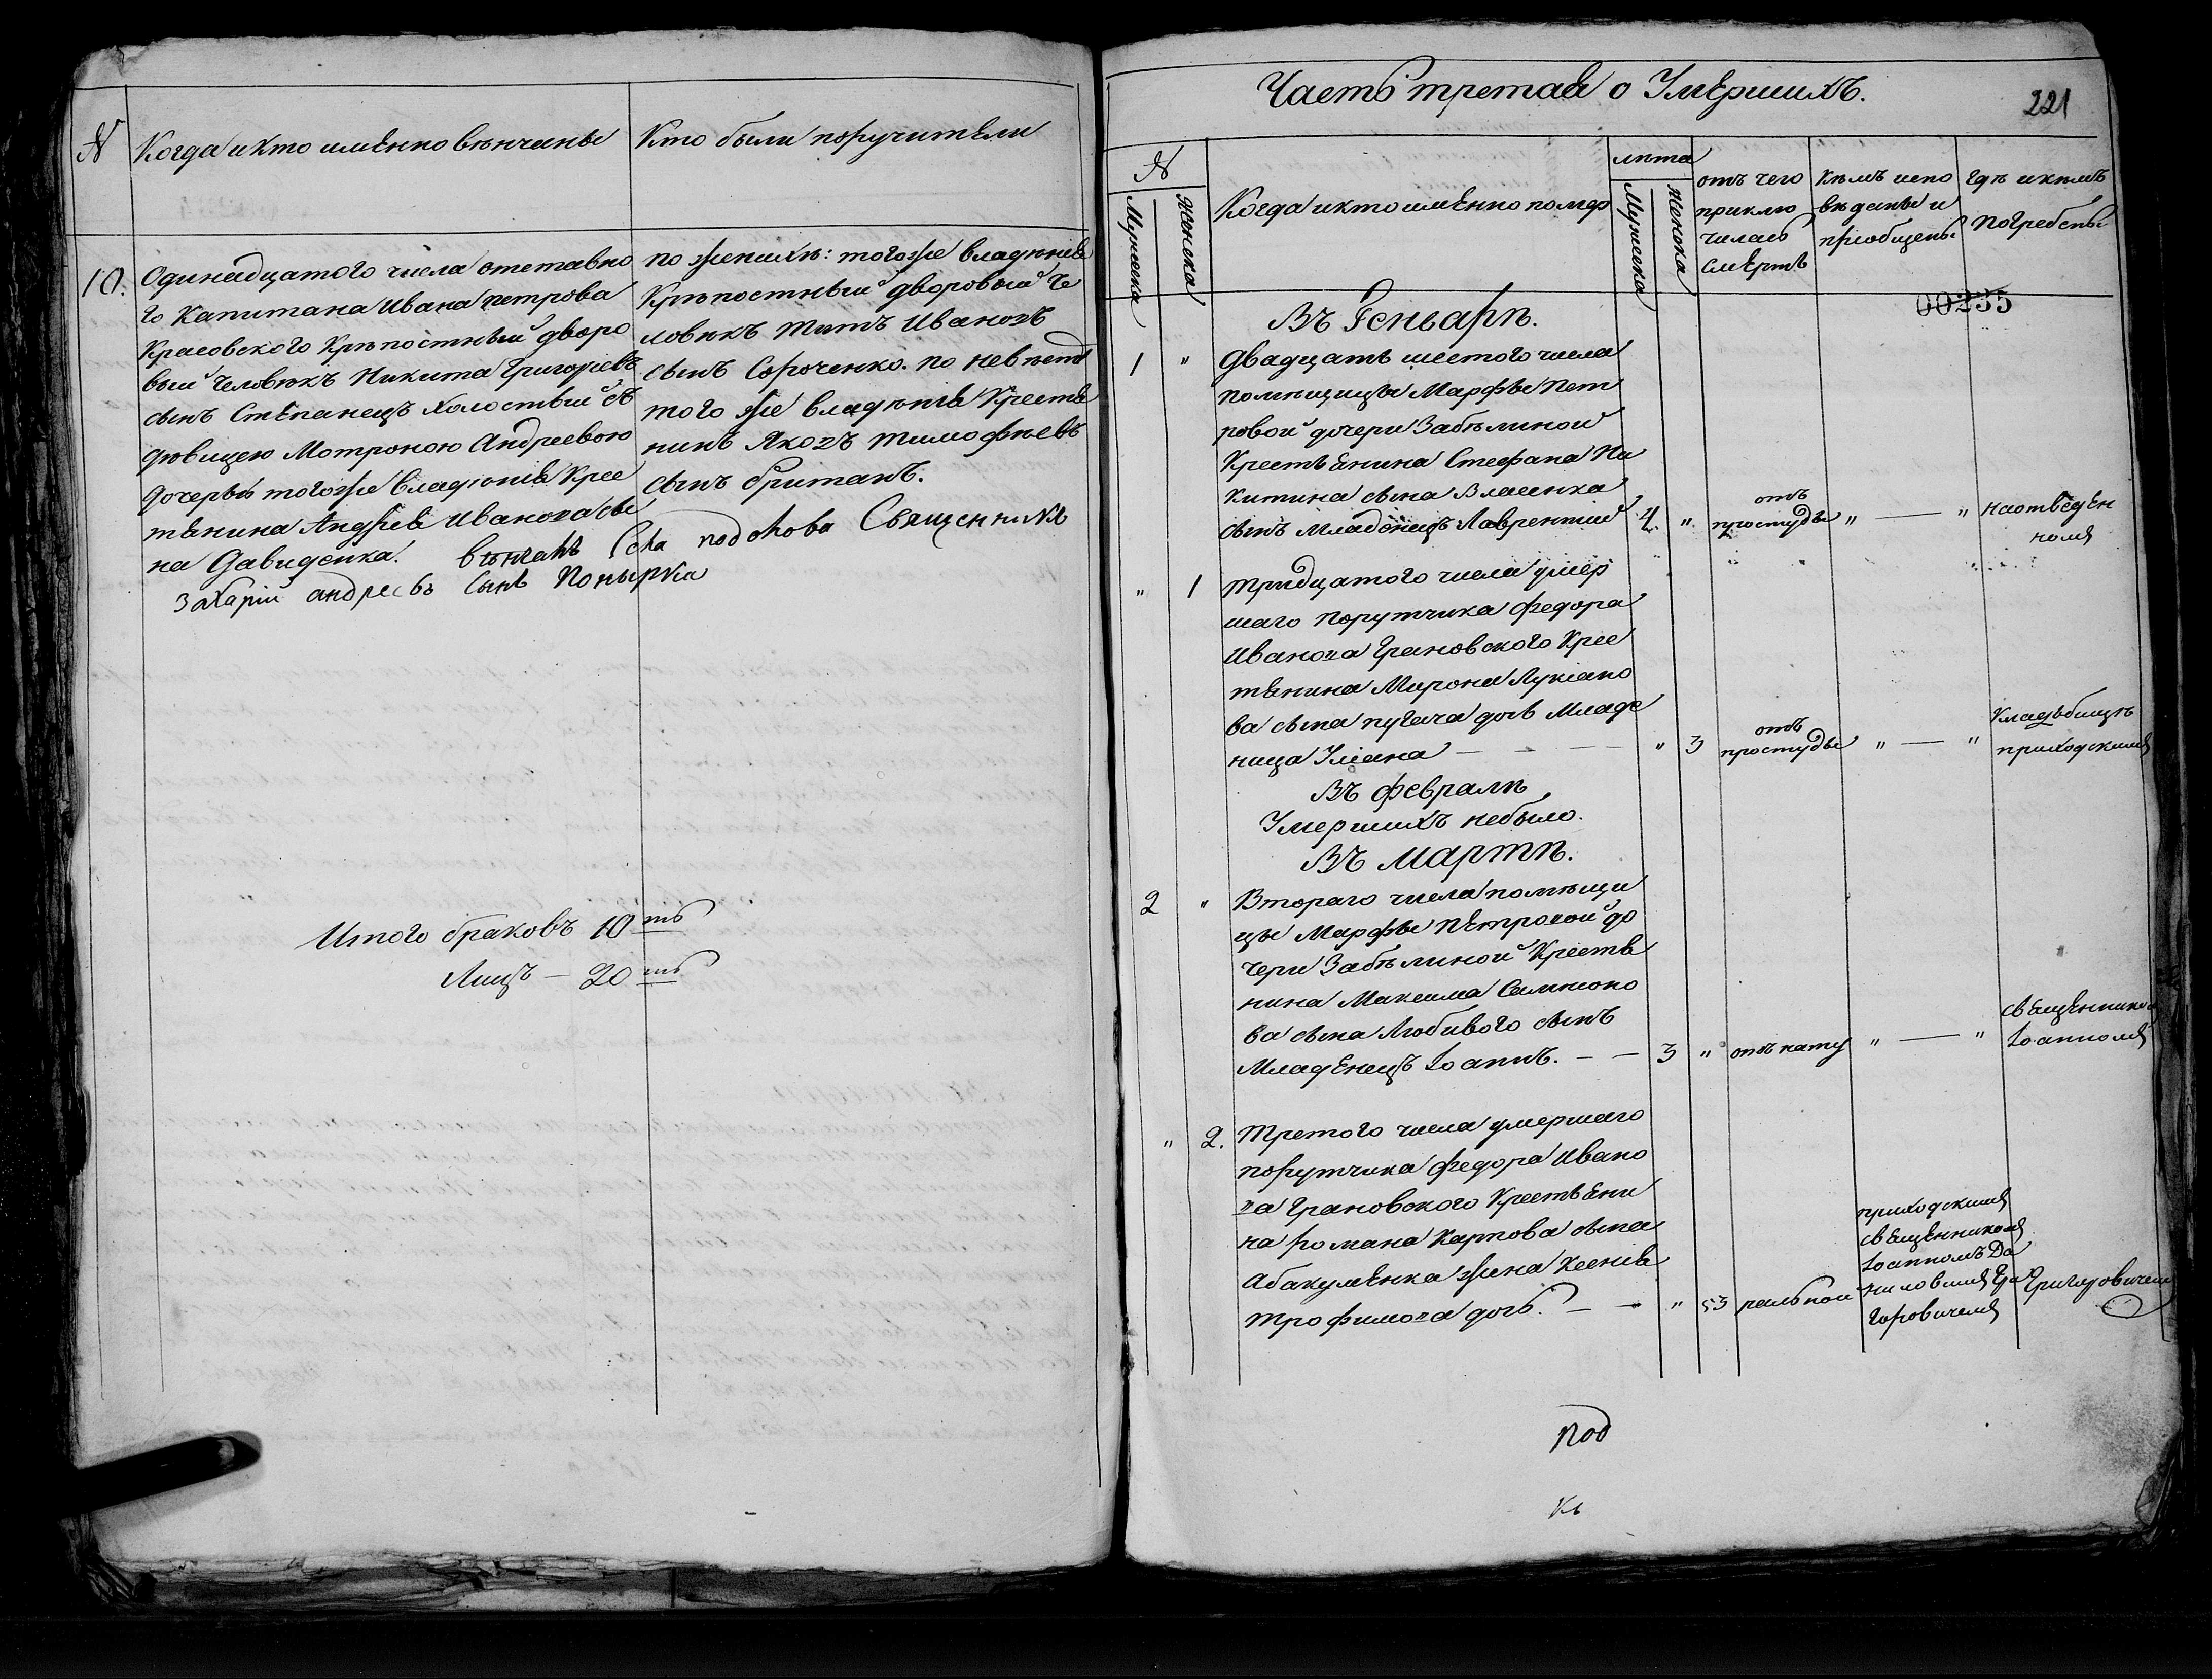 №
Когда и кто именно венчаны
Кто были поручители
10.
Одинадцатого числа отставно
го Капитана Ивана петрова
Красовского Крѣпостный дворо
вый Человѣкъ Никита Григорьевъ
сынъ Степанецъ холостый съ
дѣвицею Мотроною Андреевою
дочерью тогоже владѣнія Крес
тянина Андрея Иванова сы
на Давиденка. вѣнчалъ Села подлова Священникъ
Захарій андреевъ Сынъ Понырка
по женихѣ: тогоже владѣнія
Крѣпостный дворовый Че
ловѣкъ Титъ Ивановъ
сынъ Сороченко. по невѣстѣ
того же владѣнія Кресть
нинъ Яковъ Тимофѣевъ
сынъ Британъ.
Итого браковъ 10ть
Лицъ — 20ть
Часть третая о Умершихъ.
221
№
Мужеска
Женска
Когда и кто именно помер
лѣта
Мужеска
Женска
отъ чего
приклю
чилась
смерть
Кѣмъ испо
вѣданы и
пріобщены
Гдѣ и кѣмъ
погребены
00235
Въ Генварѣ.
1 "
Двадцать шестого числа
помѣщицы Марфы Пет
ровой дочери Забѣлиной
Крестьянина Стефана Ни
китина сына Власенка
сынъ Младенецъ Лаврентий
4 "
отъ
простуды
" — "
на отведен
номъ
" 1
Тридцатого числа умер
шаго Порутчика Федора
Иванова Грановского Крес
тянина Мирона Лукіано
ва сына пугача дочь Младе
ница Уліана — — —
" 3
отъ
простуды
" — "
Кладьбищѣ
приходскимъ
Въ Февралѣ
Умершихъ небыло.
Въ Мартѣ.
2 "
Втораго числа помѣщи
цы Марфы Петровой до
чери Забѣлиной Крестья
нина Максима Самионо
ва сына Любивого сынъ
Младенецъ Іоаннъ. — —
3 "
отъ кату
" — "
священником
Іоанномъ
" 2.
Третого числа умершаго
порутчика Федора Ивано
ва Грановского Крестьяни
на Романа Карпова сына
Абакуменка жена Ксенія
Трофимова дочь. — —
" 53
приходскимъ
священникомъ
Іоанномъ Да
ниловимъ Гри
горовичемъ
Григоровичемъ
Под
Къ